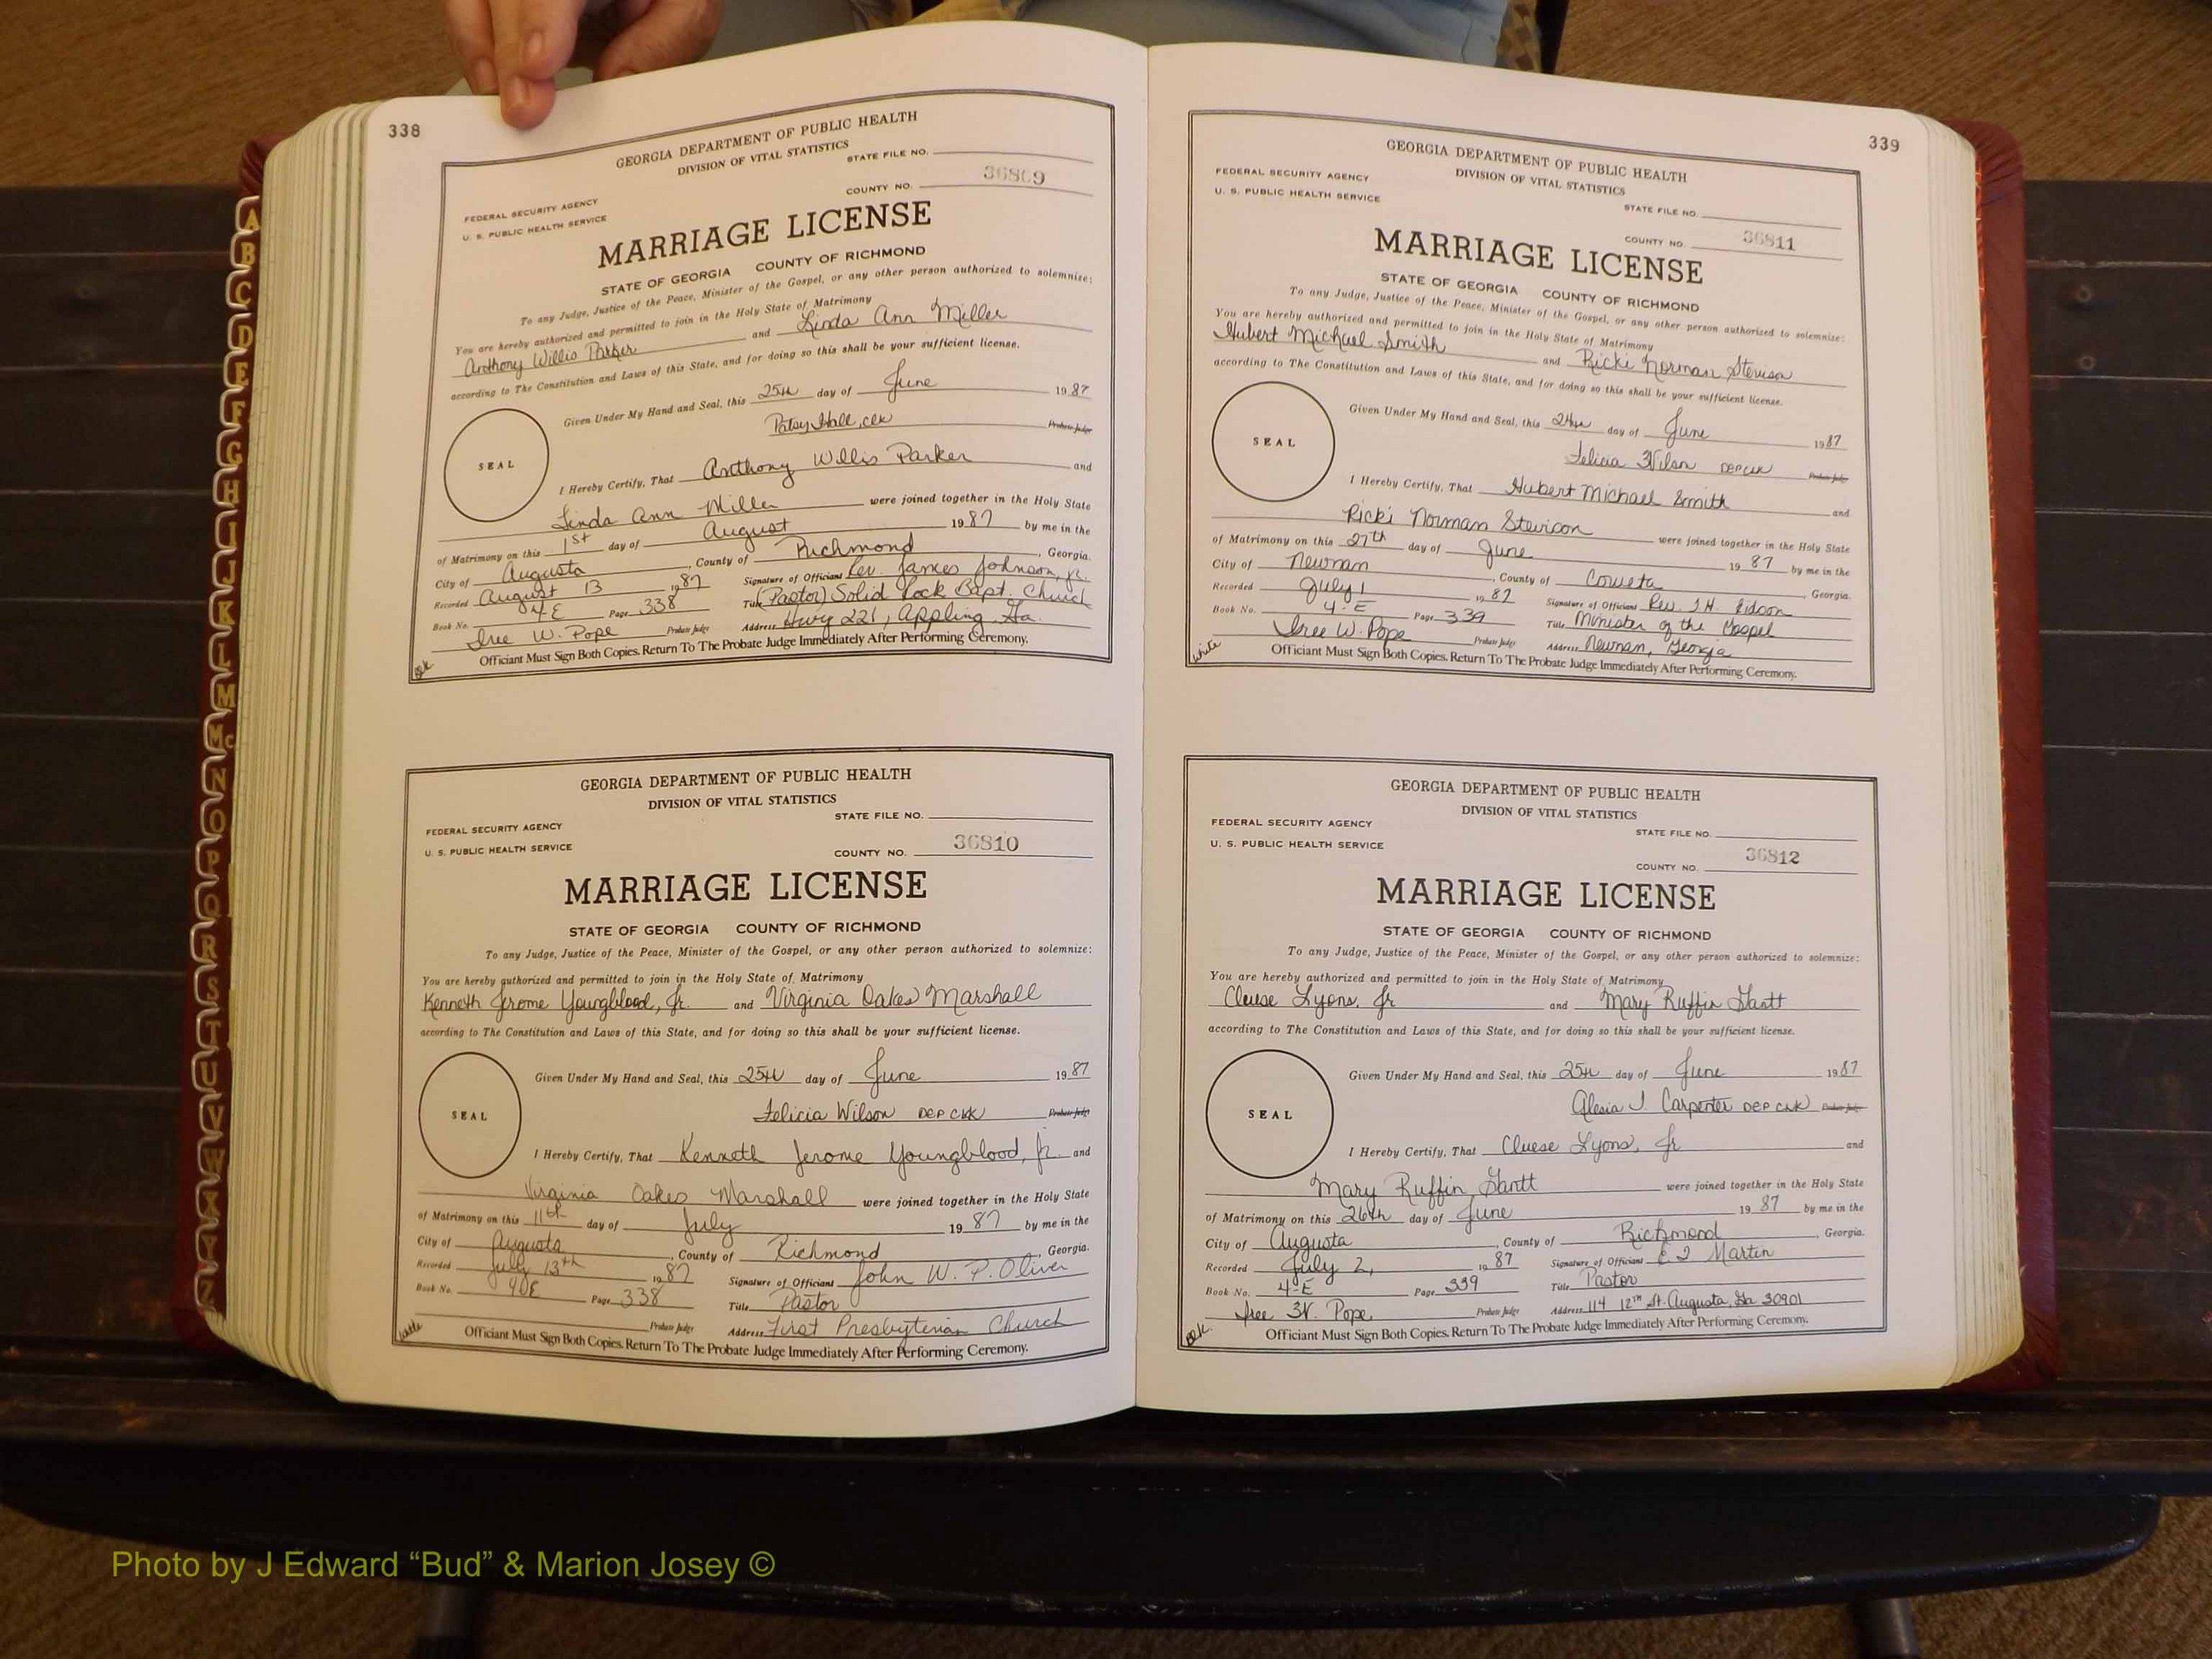 338
GEORGIA DEPARTMENT OF PUBLIC HEALTH
DIVISION OF VITAL STATISTICS
STATE FILE NO.
FEDERAL SECURITY AGENCY
U. S. PUBLIC HEALTH SERVICE
COUNTY NO. 36809
MARRIAGE LICENSE
STATE OF GEORGIA COUNTY OF RICHMOND
To any Judge, Justice of the Peace, Minister of the Gospel, or any other person authorized to solemnize:
You are hereby authorized and permitted to join in the Holy State of Matrimony
Anthony Willis Parker and Linda Ann Miller
according to The Constitution and Laws of this State, and for doing so this shall be your sufficient license.
Given Under My Hand and Seal, this 25th day of June 1987
Patsy Hall, clk Probate Judge
SEAL
I Hereby Certify, That Anthony Willis Parker and
Linda Ann Miller were joined together in the Holy State
of Matrimony on this 1st day of August 1987 by me in the
City of Augusta, County of Richmond, Georgia.
Recorded August 13 1987 Signature of Officiant Rev. James Johnson, Jr.
Book No. 4E Page 338 Title (Pastor) Solid Rock Bapt. Church
Isee W. Pope Probate Judge Address Hwy 221, Appling, Ga.
Officiant Must Sign Both Copies. Return To The Probate Judge Immediately After Performing Ceremony.
GEORGIA DEPARTMENT OF PUBLIC HEALTH
DIVISION OF VITAL STATISTICS
STATE FILE NO.
FEDERAL SECURITY AGENCY
U. S. PUBLIC HEALTH SERVICE
COUNTY NO. 36810
MARRIAGE LICENSE
STATE OF GEORGIA COUNTY OF RICHMOND
To any Judge, Justice of the Peace, Minister of the Gospel, or any other person authorized to solemnize:
You are hereby authorized and permitted to join in the Holy State of Matrimony
Kenneth Jerome Youngblood, Jr. and Virginia Oakes Marshall
according to The Constitution and Laws of this State, and for doing so this shall be your sufficient license.
Given Under My Hand and Seal, this 25th day of June 1987
Felicia Wilson DEP CLK Probate Judge
SEAL
I Hereby Certify, That Kenneth Jerome Youngblood, Jr. and
Virginia Oakes Marshall were joined together in the Holy State
of Matrimony on this 11th day of July 1987 by me in the
City of Augusta, County of Richmond, Georgia.
Recorded July 13th 1987 Signature of Officiant John W. P. Oliver
Book No. Page 338 Title Pastor
Probate Judge Address First Presbyterian Church
Officiant Must Sign Both Copies. Return To The Probate Judge Immediately After Performing Ceremony.
339
GEORGIA DEPARTMENT OF PUBLIC HEALTH
DIVISION OF VITAL STATISTICS
FEDERAL SECURITY AGENCY
U. S. PUBLIC HEALTH SERVICE
STATE FILE NO.
COUNTY NO. 36811
MARRIAGE LICENSE
STATE OF GEORGIA COUNTY OF RICHMOND
To any Judge, Justice of the Peace, Minister of the Gospel, or any other person authorized to solemnize:
You are hereby authorized and permitted to join in the Holy State of Matrimony
Hubert Michael Smith and Ricki Norman Stevison
according to The Constitution and Laws of this State, and for doing so this shall be your sufficient license.
Given Under My Hand and Seal, this 24th day of June 1987
Felicia Wilson DEP CLK Probate Judge
SEAL
I Hereby Certify, That Hubert Michael Smith and
Ricki Norman Stevison were joined together in the Holy State
of Matrimony on this 27th day of June 1987 by me in the
City of Newnan, County of Coweta, Georgia.
Recorded July 1 1987 Signature of Officiant Rev. J.H. Eidson
Book No. 4-E Page 339 Title Minister of the Gospel
Isee W. Pope Probate Judge Address Newnan, Georgia
white
Officiant Must Sign Both Copies. Return To The Probate Judge Immediately After Performing Ceremony.
GEORGIA DEPARTMENT OF PUBLIC HEALTH
DIVISION OF VITAL STATISTICS
FEDERAL SECURITY AGENCY
STATE FILE NO.
U. S. PUBLIC HEALTH SERVICE
COUNTY NO. 36812
MARRIAGE LICENSE
STATE OF GEORGIA COUNTY OF RICHMOND
To any Judge, Justice of the Peace, Minister of the Gospel, or any other person authorized to solemnize:
You are hereby authorized and permitted to join in the Holy State of Matrimony
Cluese Lyons, Jr and Mary Ruffin Gantt
according to The Constitution and Laws of this State, and for doing so this shall be your sufficient license.
Given Under My Hand and Seal, this 25th day of June 1987
Alesia J. Carpenter DEP CLK Probate Judge
SEAL
I Hereby Certify, That Cluese Lyons, Jr and
Mary Ruffin Gantt were joined together in the Holy State
of Matrimony on this 26th day of June 1987 by me in the
City of Augusta, County of Richmond, Georgia.
Recorded July 2, 1987 Signature of Officiant E. J. Martin
Book No. 4-E Page 339 Title Pastor
Isee W. Pope Probate Judge Address 114 12th St. Augusta, Ga 30901
Officiant Must Sign Both Copies. Return To The Probate Judge Immediately After Performing Ceremony.
A
B
C
D
E
F
G
H
I
J
K
L
M
Mc
N
O
P
Q
R
S
T
U
V
W
X
Y
Z
Photo by J Edward “Bud” & Marion Josey ©